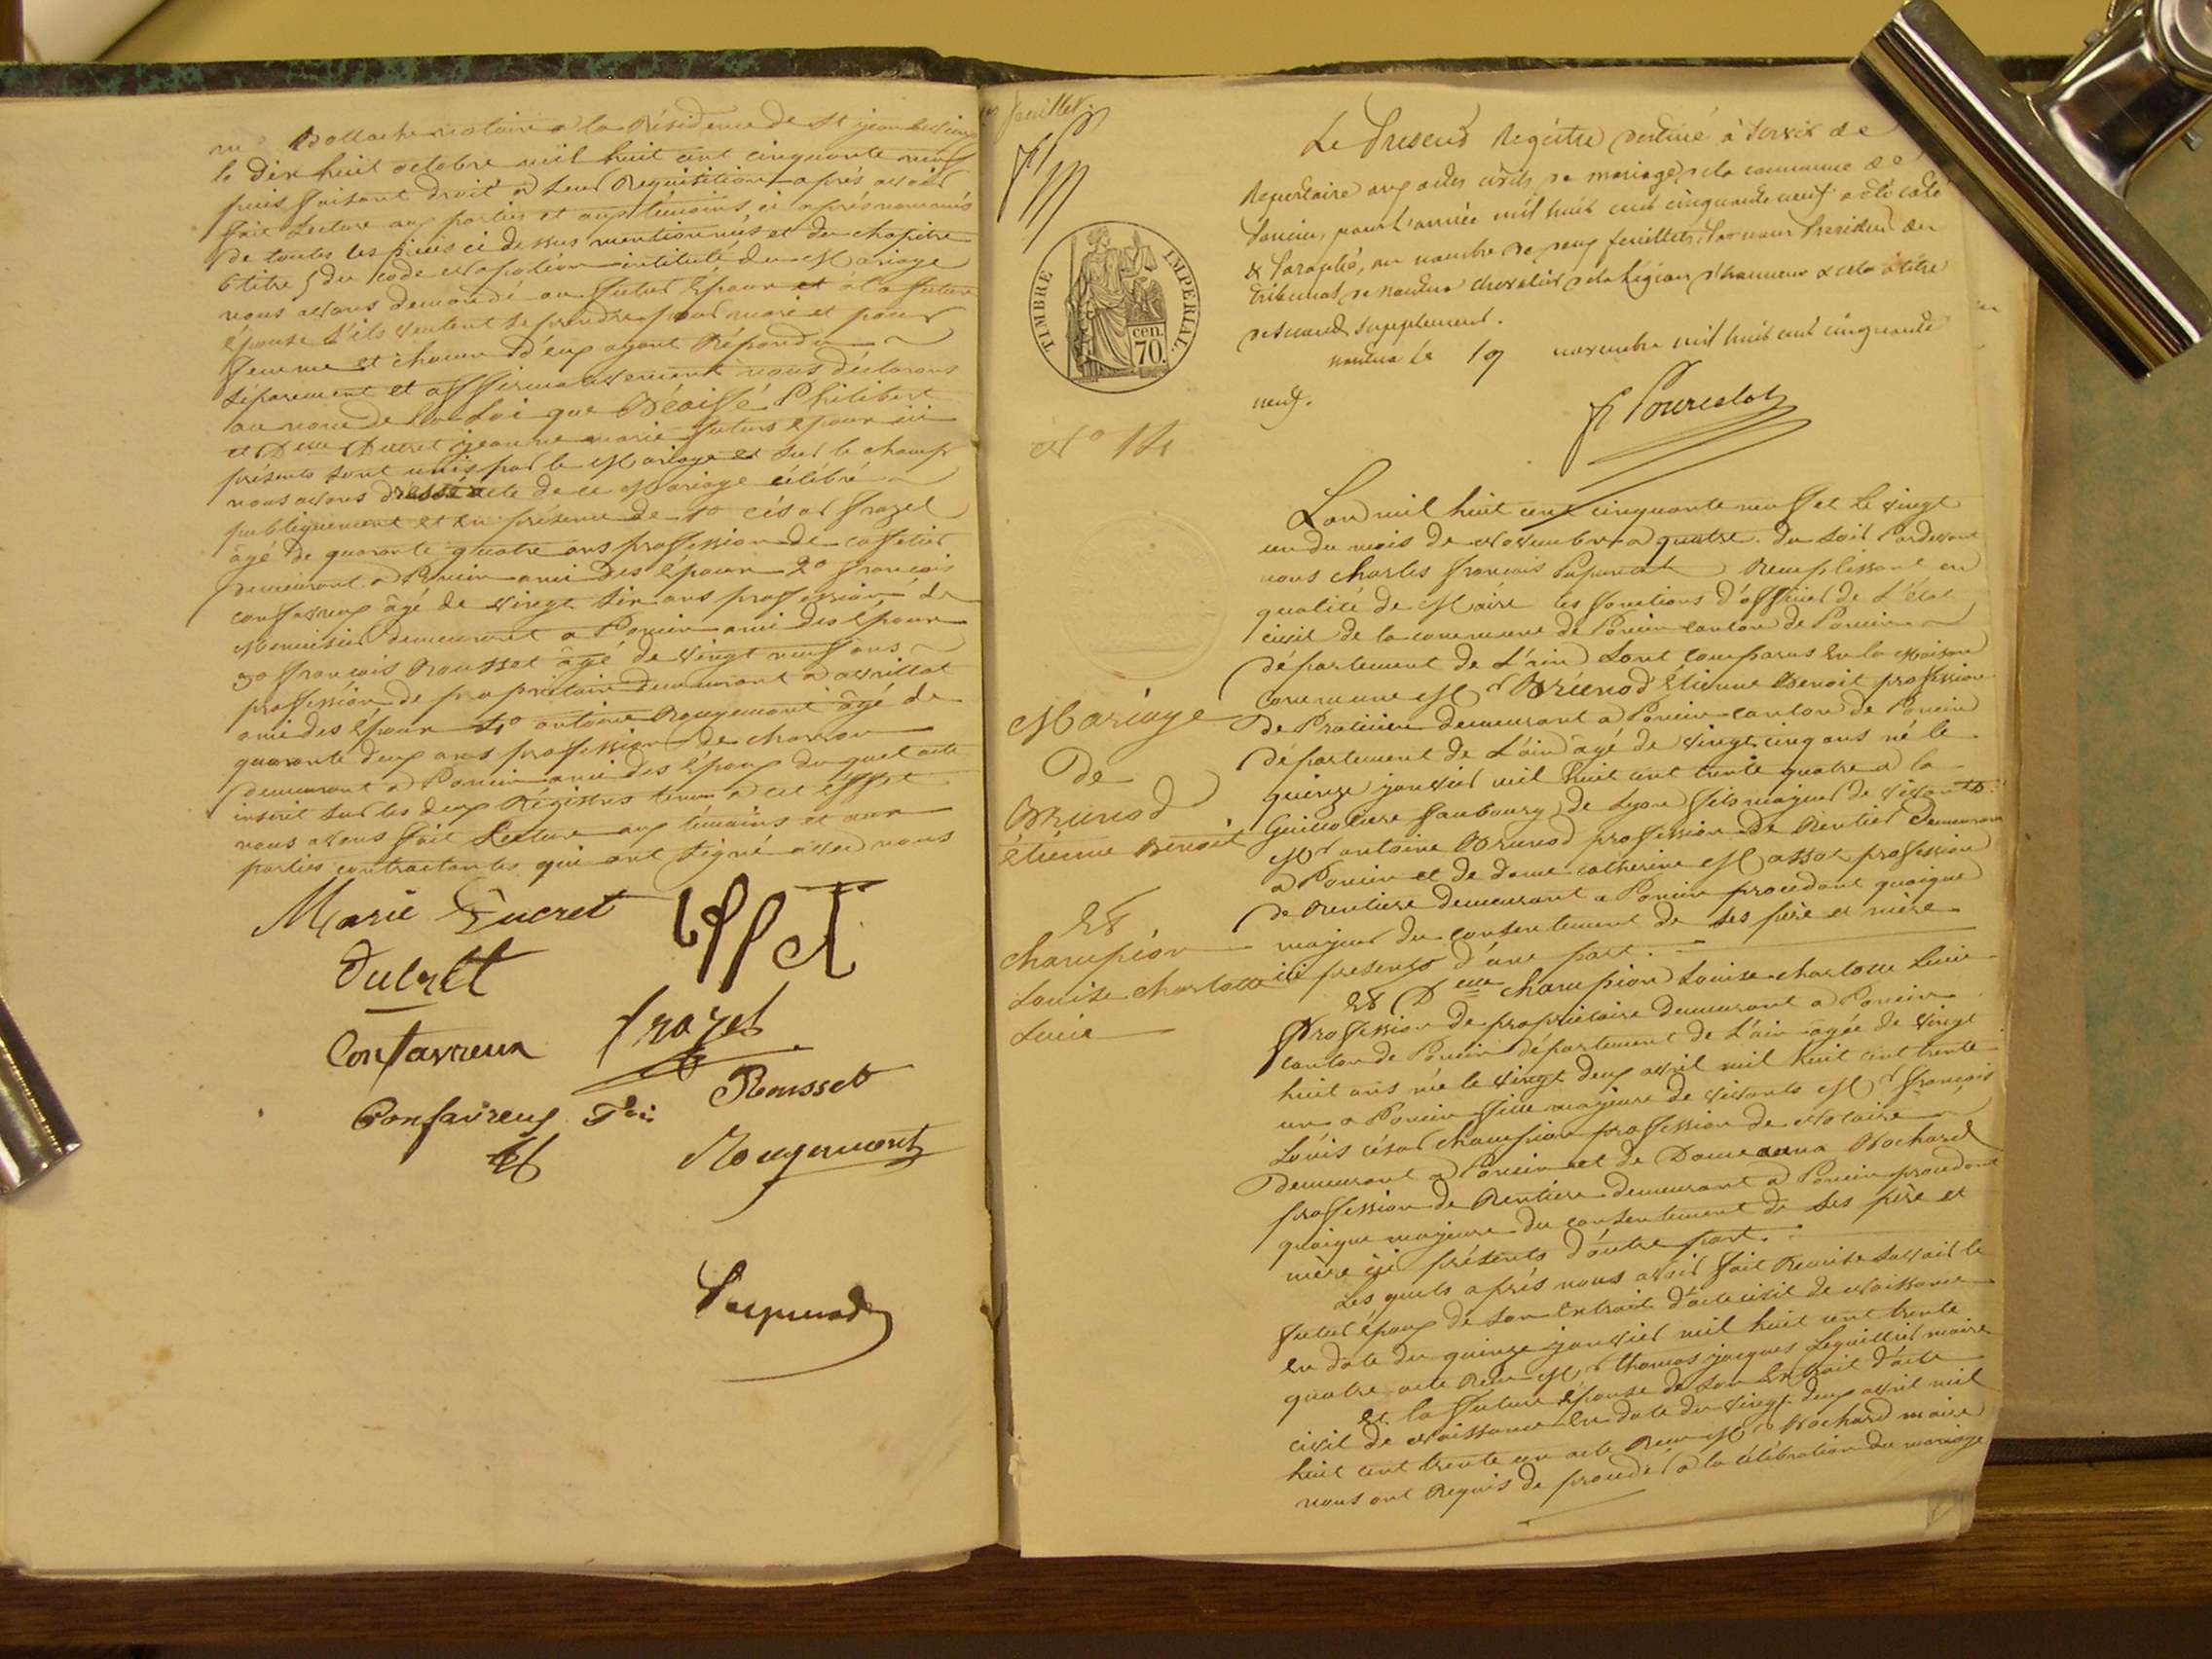 notaire a la Résidence de St jean
le dix huit octobre mil huit cent cinquante neuf
puis faisant droit a leur Requisition après avoir
fait Lecture aux parties et aux témoins, ci après nommés
de toutes les pièces ci dessus mentionnés et du chapitre
6 titre 5 du Code Napoléon intitulé du Mariage
nous avons demandé au futur Epoux et à la future
épouse s'ils veulent se prendre pour mari et pour
femme et chacun d'eux ayant Répondu
séparement et affirmativement nous déclarons
au nom de la Loi que Philibert
et Delle Ducret jeanne marie futurs Epoux ici
présents sont unis par le Mariage et sur le champ
nous avons dressé acte de ce Mariage célébré
publiquement et en présence de 1o César frazel
âgé de quarante quatre ans proffession de caffetier
demeurant a Poncin ami des Epoux 2o françois
confavreux âgé de vingt six ans proffession de
Menuisier demeurant a Poncin ami des Epoux
3o françois Rousset âgé de vingt neuf ans
proffession de propriétaire demeurant a
ami des Epoux 4o antoine Rougemont âgé de
quarante deux ans proffession de charron
demeurant a Poncin ami des Epoux du quel acte
inscrit sur les deux Régistres tenus a cet éffet
nous avons fait Lecture aux témoins et aux
parties contractantes qui ont signé avec nous
Marie Ducret
Ducret
Confavreux frazel
Confavreux Rousset
Rougemont
Papunat
1er feuillet
TIMBRE IMPERIAL
cen. 70.
Le Présent Régistre destiné à servir de
Repertoire aux actes civils de mariage de la commune de
Poncin, pour l'année mil huit cent cinquante neuf a été coté
& Paraphé, au nombre de deux feuillets, Par nous President du
tribunal de Nantua chevalier de la Légion d'honneur & cela à titre
de second supplement.
Nantua le 19 novembre mil huit cent cinquante
neuf.
No 14
Mariage
De
Brunod
Etienne Benoit
Et
Champion
Louise charlotte
Lucie
L'an mil huit cent cinquante neuf et le vingt
un du mois de Novembre a quatre du soir Pardevant
nous Charles françois Papunat Remplissant en
qualité de Maire les fonctions d'officier de L'état
civil de la commune de Poncin canton de Poncin
département de L'ain sont comparus En la Maison
commune Mr Brunod Etienne Benoit profession
de Praticien demeurant a Poncin canton de Poncin
département de L'ain âgé de vingt cinq ans né le
quinze janvier mil huit cent trente quatre a la
Guillotiere faubourg de Lyon fils majeur de vivants
Mr antoine Brunod proffession de Rentier demeurant
a Poncin et de dame catherine Massot proffession
de Rentiere demeurant a Poncin procedant quoique
majeur du consentement de ses père et mère
ici presents d'une part.
Et Delle Champion Louise charlotte Lucie
Proffession de propriétaire demeurant a Poncin
canton de Poncin département de L'ain âgée de vingt
huit ans née le vingt deux avril mil huit cent trente
un a Poncin fille majeure de vivants Mr françois
Louis césar Champion proffession de Notaire
demeurant a Poncin et de Dame anna Bochard
proffession de Rentiere demeurant a Poncin procedant
quoique majeure du consentement de ses père et
mère ici présents d'autre part.
Les quels après nous avoir fait Remise savoir le
futur époux de son Extrait d'acte civil de Naissance
en date du quinze janvier mil huit cent trente
quatre acte Reçu Mr thomas jacques maire
Et la future épouse de son Extrait d'acte
civil de Naissance En date du vingt deux avril mil
huit cent trente un acte Reçu Mr Bochard maire
nous ont Requis de procéder a la célébration du mariage